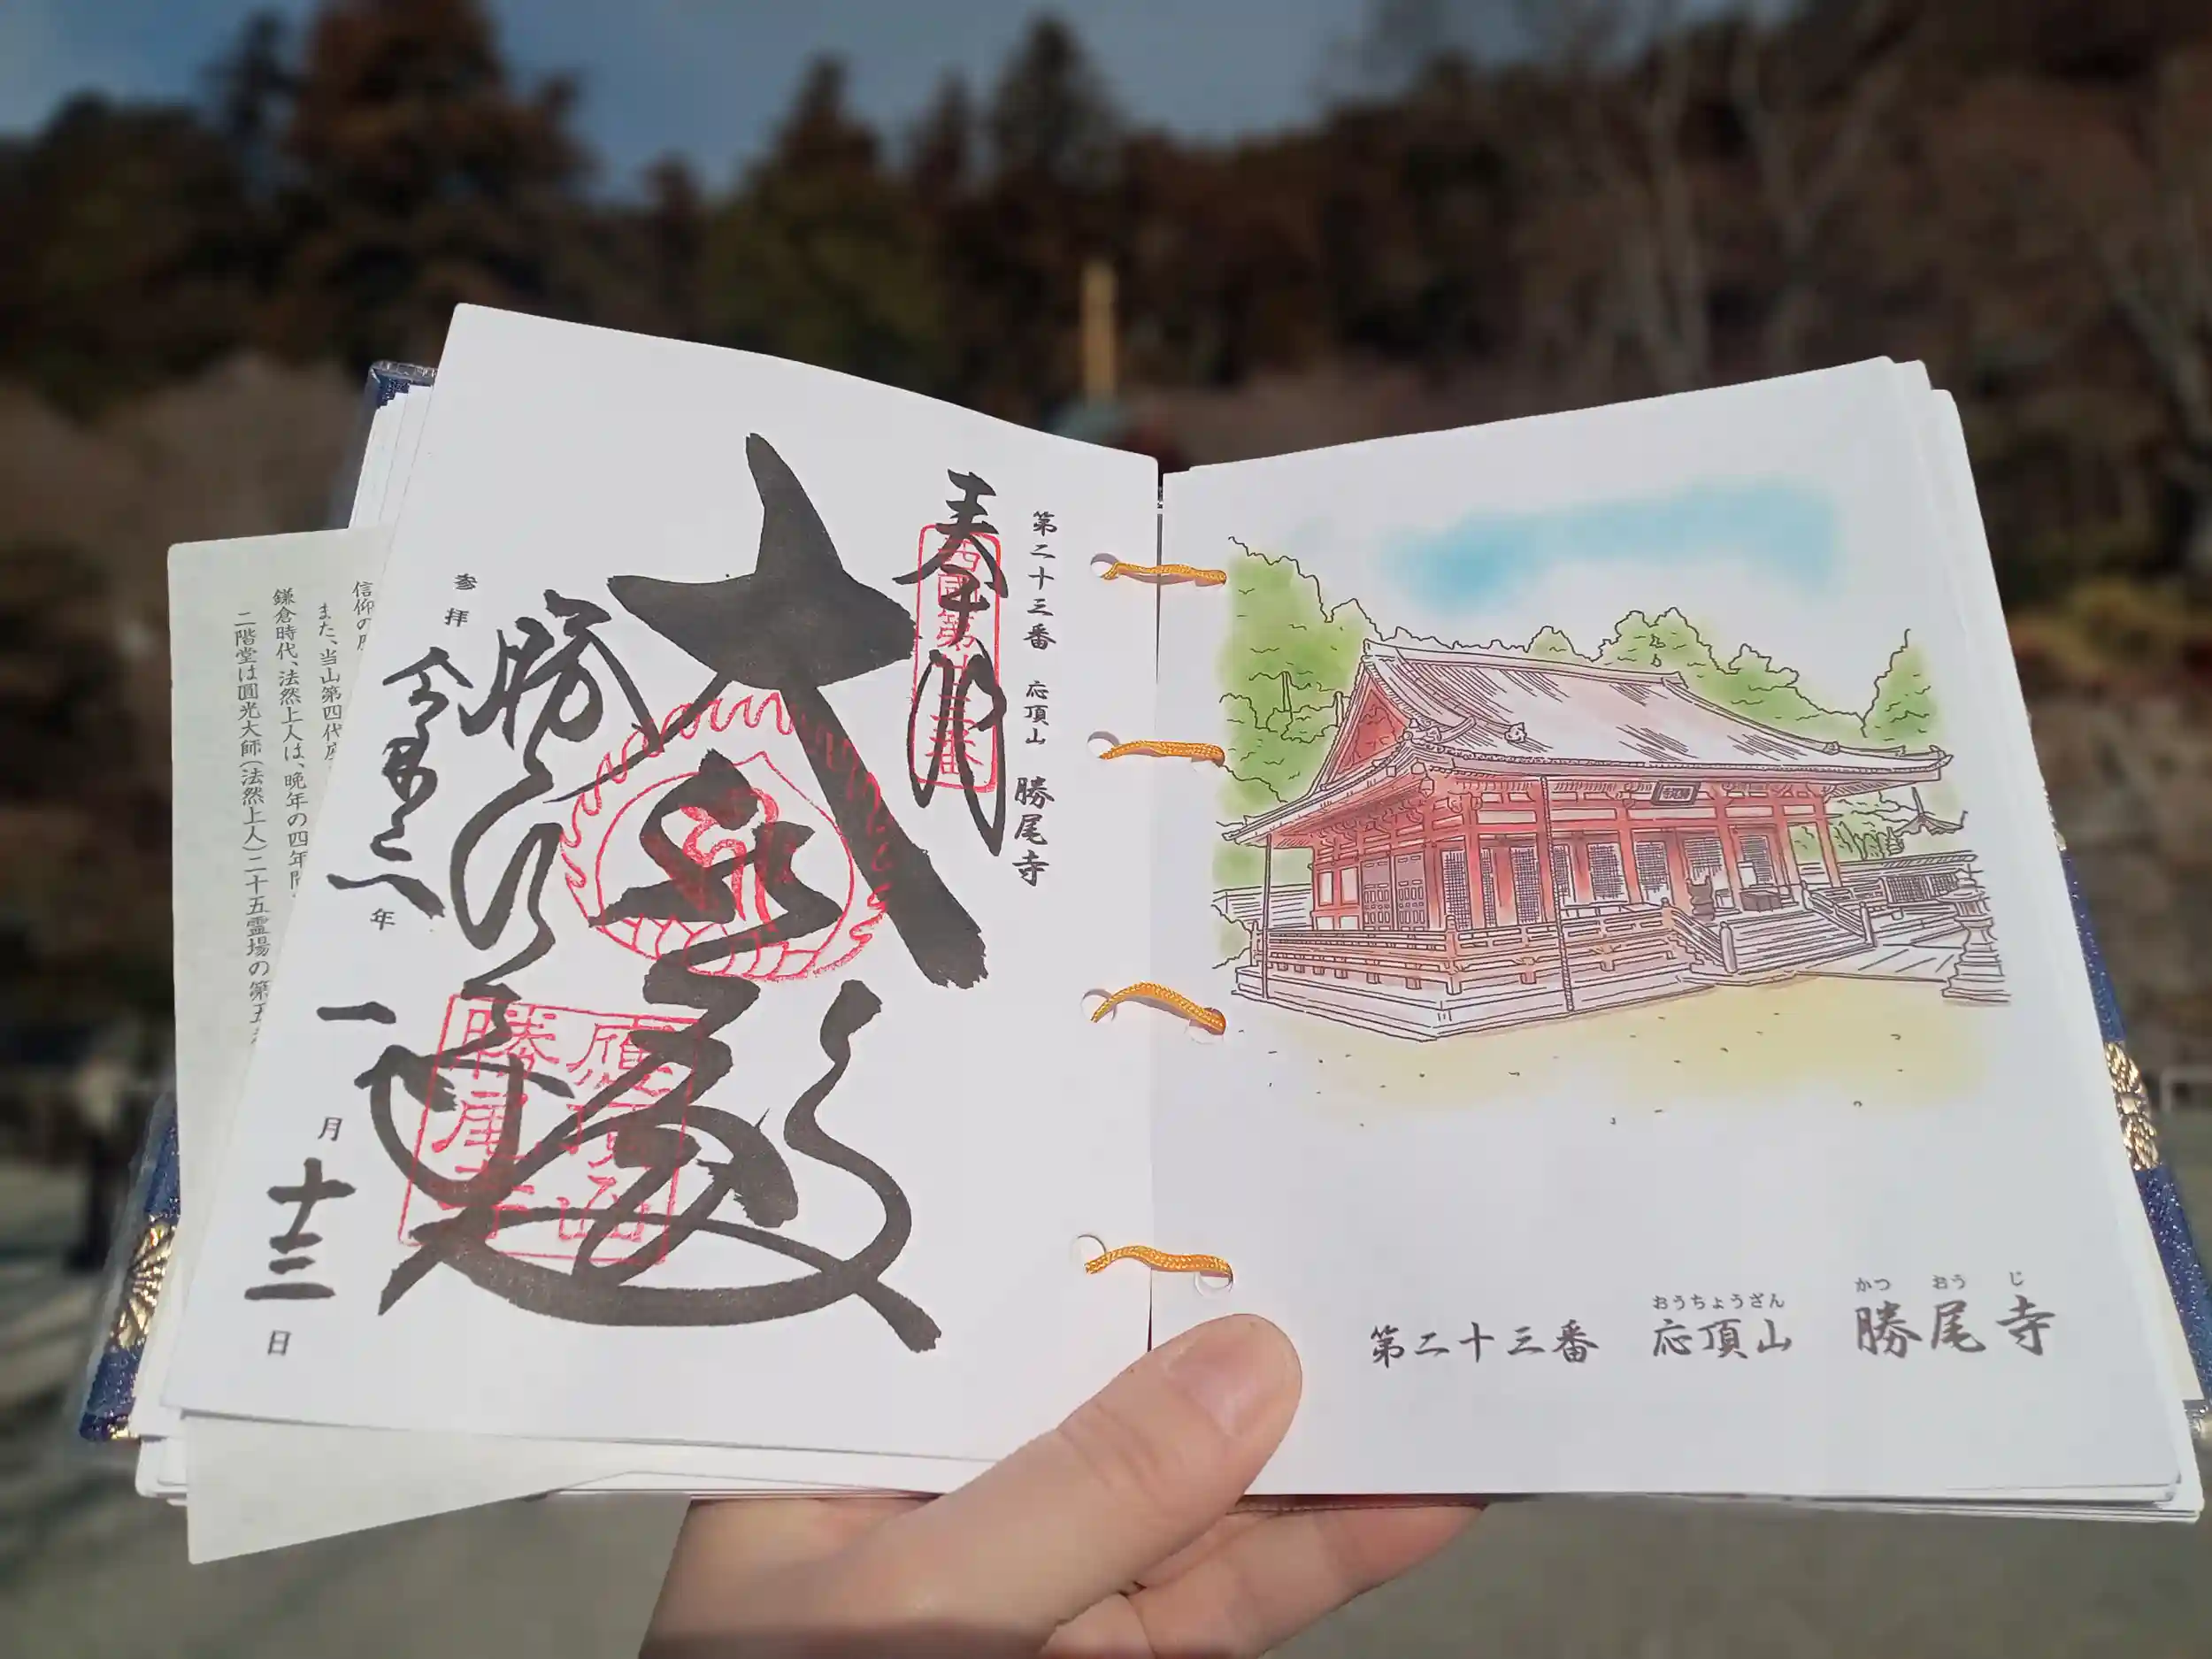 第二十三番 応頂山 勝尾寺
奉拝
西国第廿三番
大悲殿
勝尾寺
応頂山
勝尾寺
参拝
令和二年
一月十三日
信仰の
また、当山第四代座
鎌倉時代、法然上人は、晩年の四年間
二階堂は圓光大師(法然上人)二十五霊場の第五
おうちょうざん
かつおうじ
第二十三番 応頂山 勝尾寺